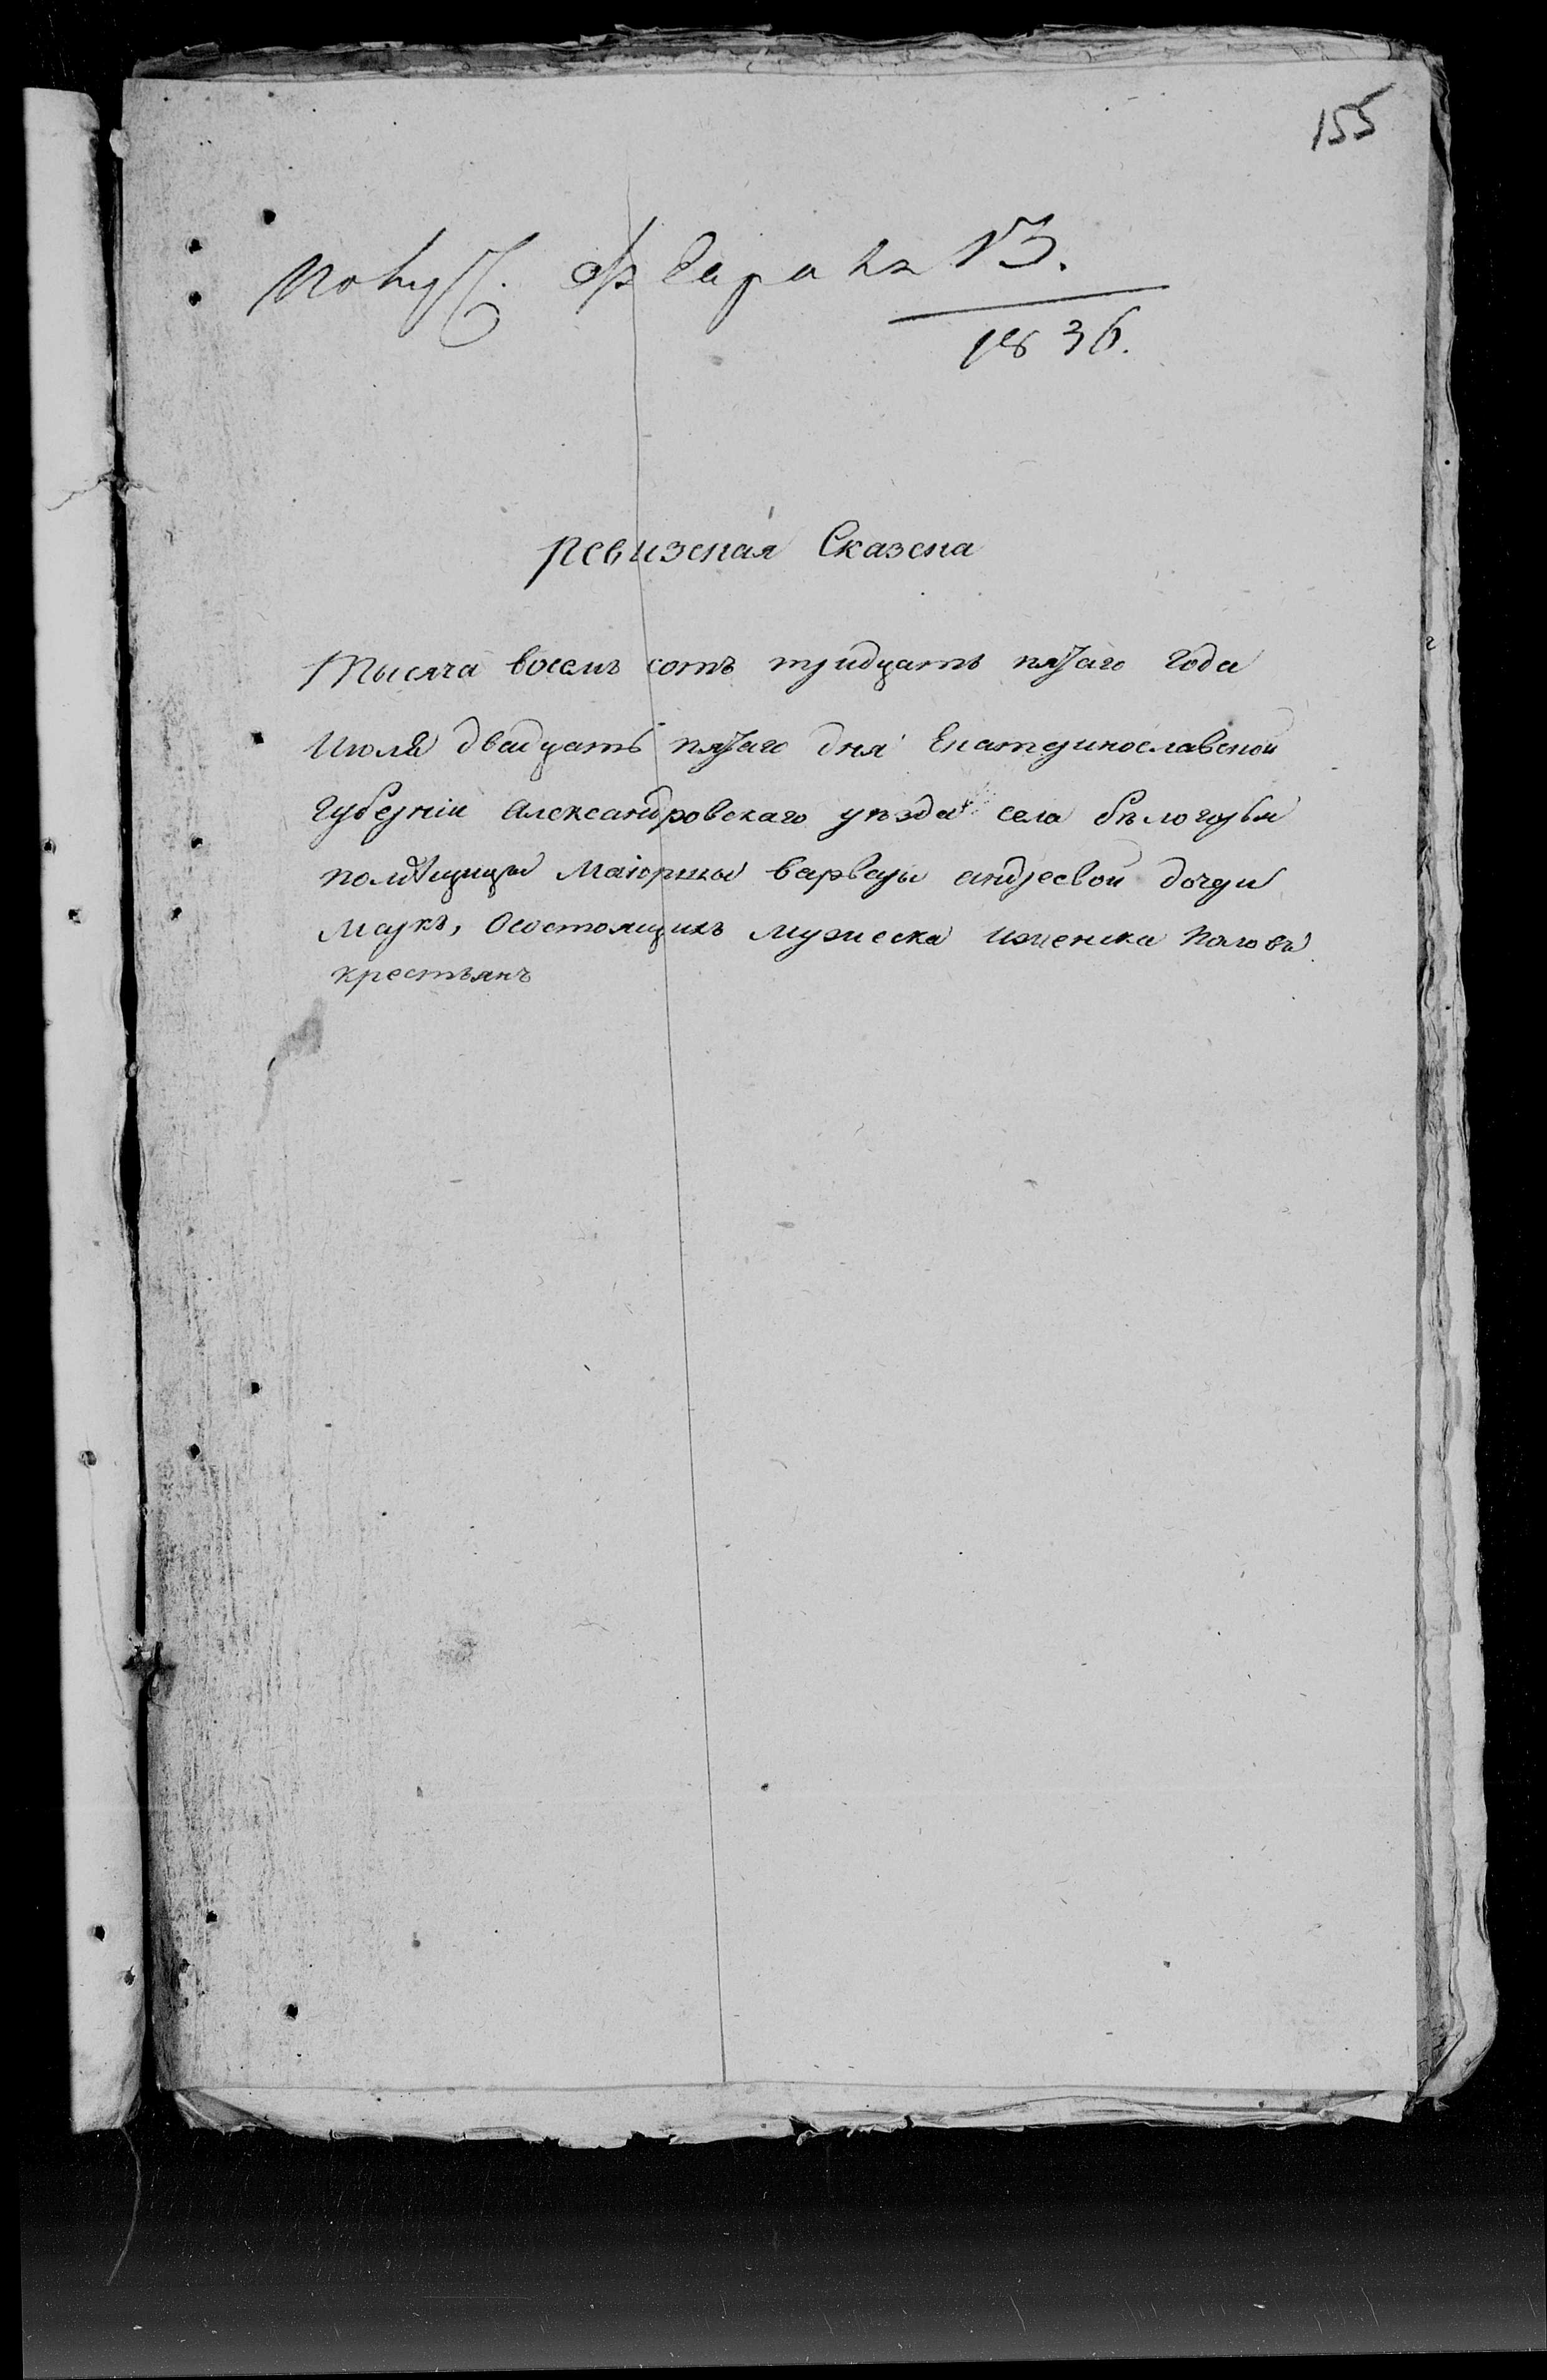 155
Получ. Февраля 13.
1836.
Ревизская Сказска
Тысяча восемъ сотъ тридцать пятаго года
Июля двадцать пятаго дня Екатеринославской
губерніи Александровскаго уезда села белогорья
помѣщицы Маіорши варвары андреевой дочери
Маркъ, Осостоящихъ мужеска иженска половъ
крестьянъ